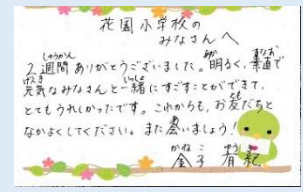 花園小学校の
みなさんへ
2週間ありがとうございました。明るく、素直で
元気なみなさんと一緒にすごすことができて、
とてもうれしかったです。これからも、お友だちと
なかよくしてください。また会いましょう!
金子 有記